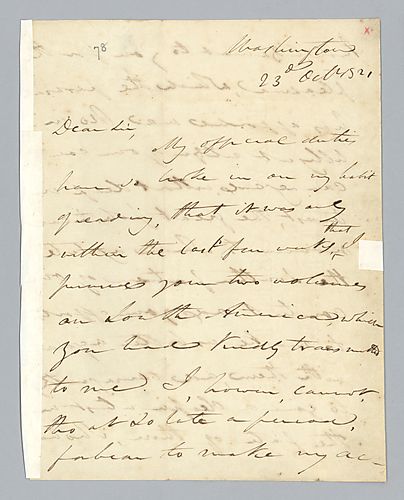 78
x
Washington
23d Oct 1821
Dear Sir,
My official duties
have so broke in on my habit
of reading, that it was only
within the last few weeks, that I
peruse your two volumes
on South America, which
you had kindly transmitted
to me. I, however, cannot,
tho at so late a period,
forbear to make my ac-